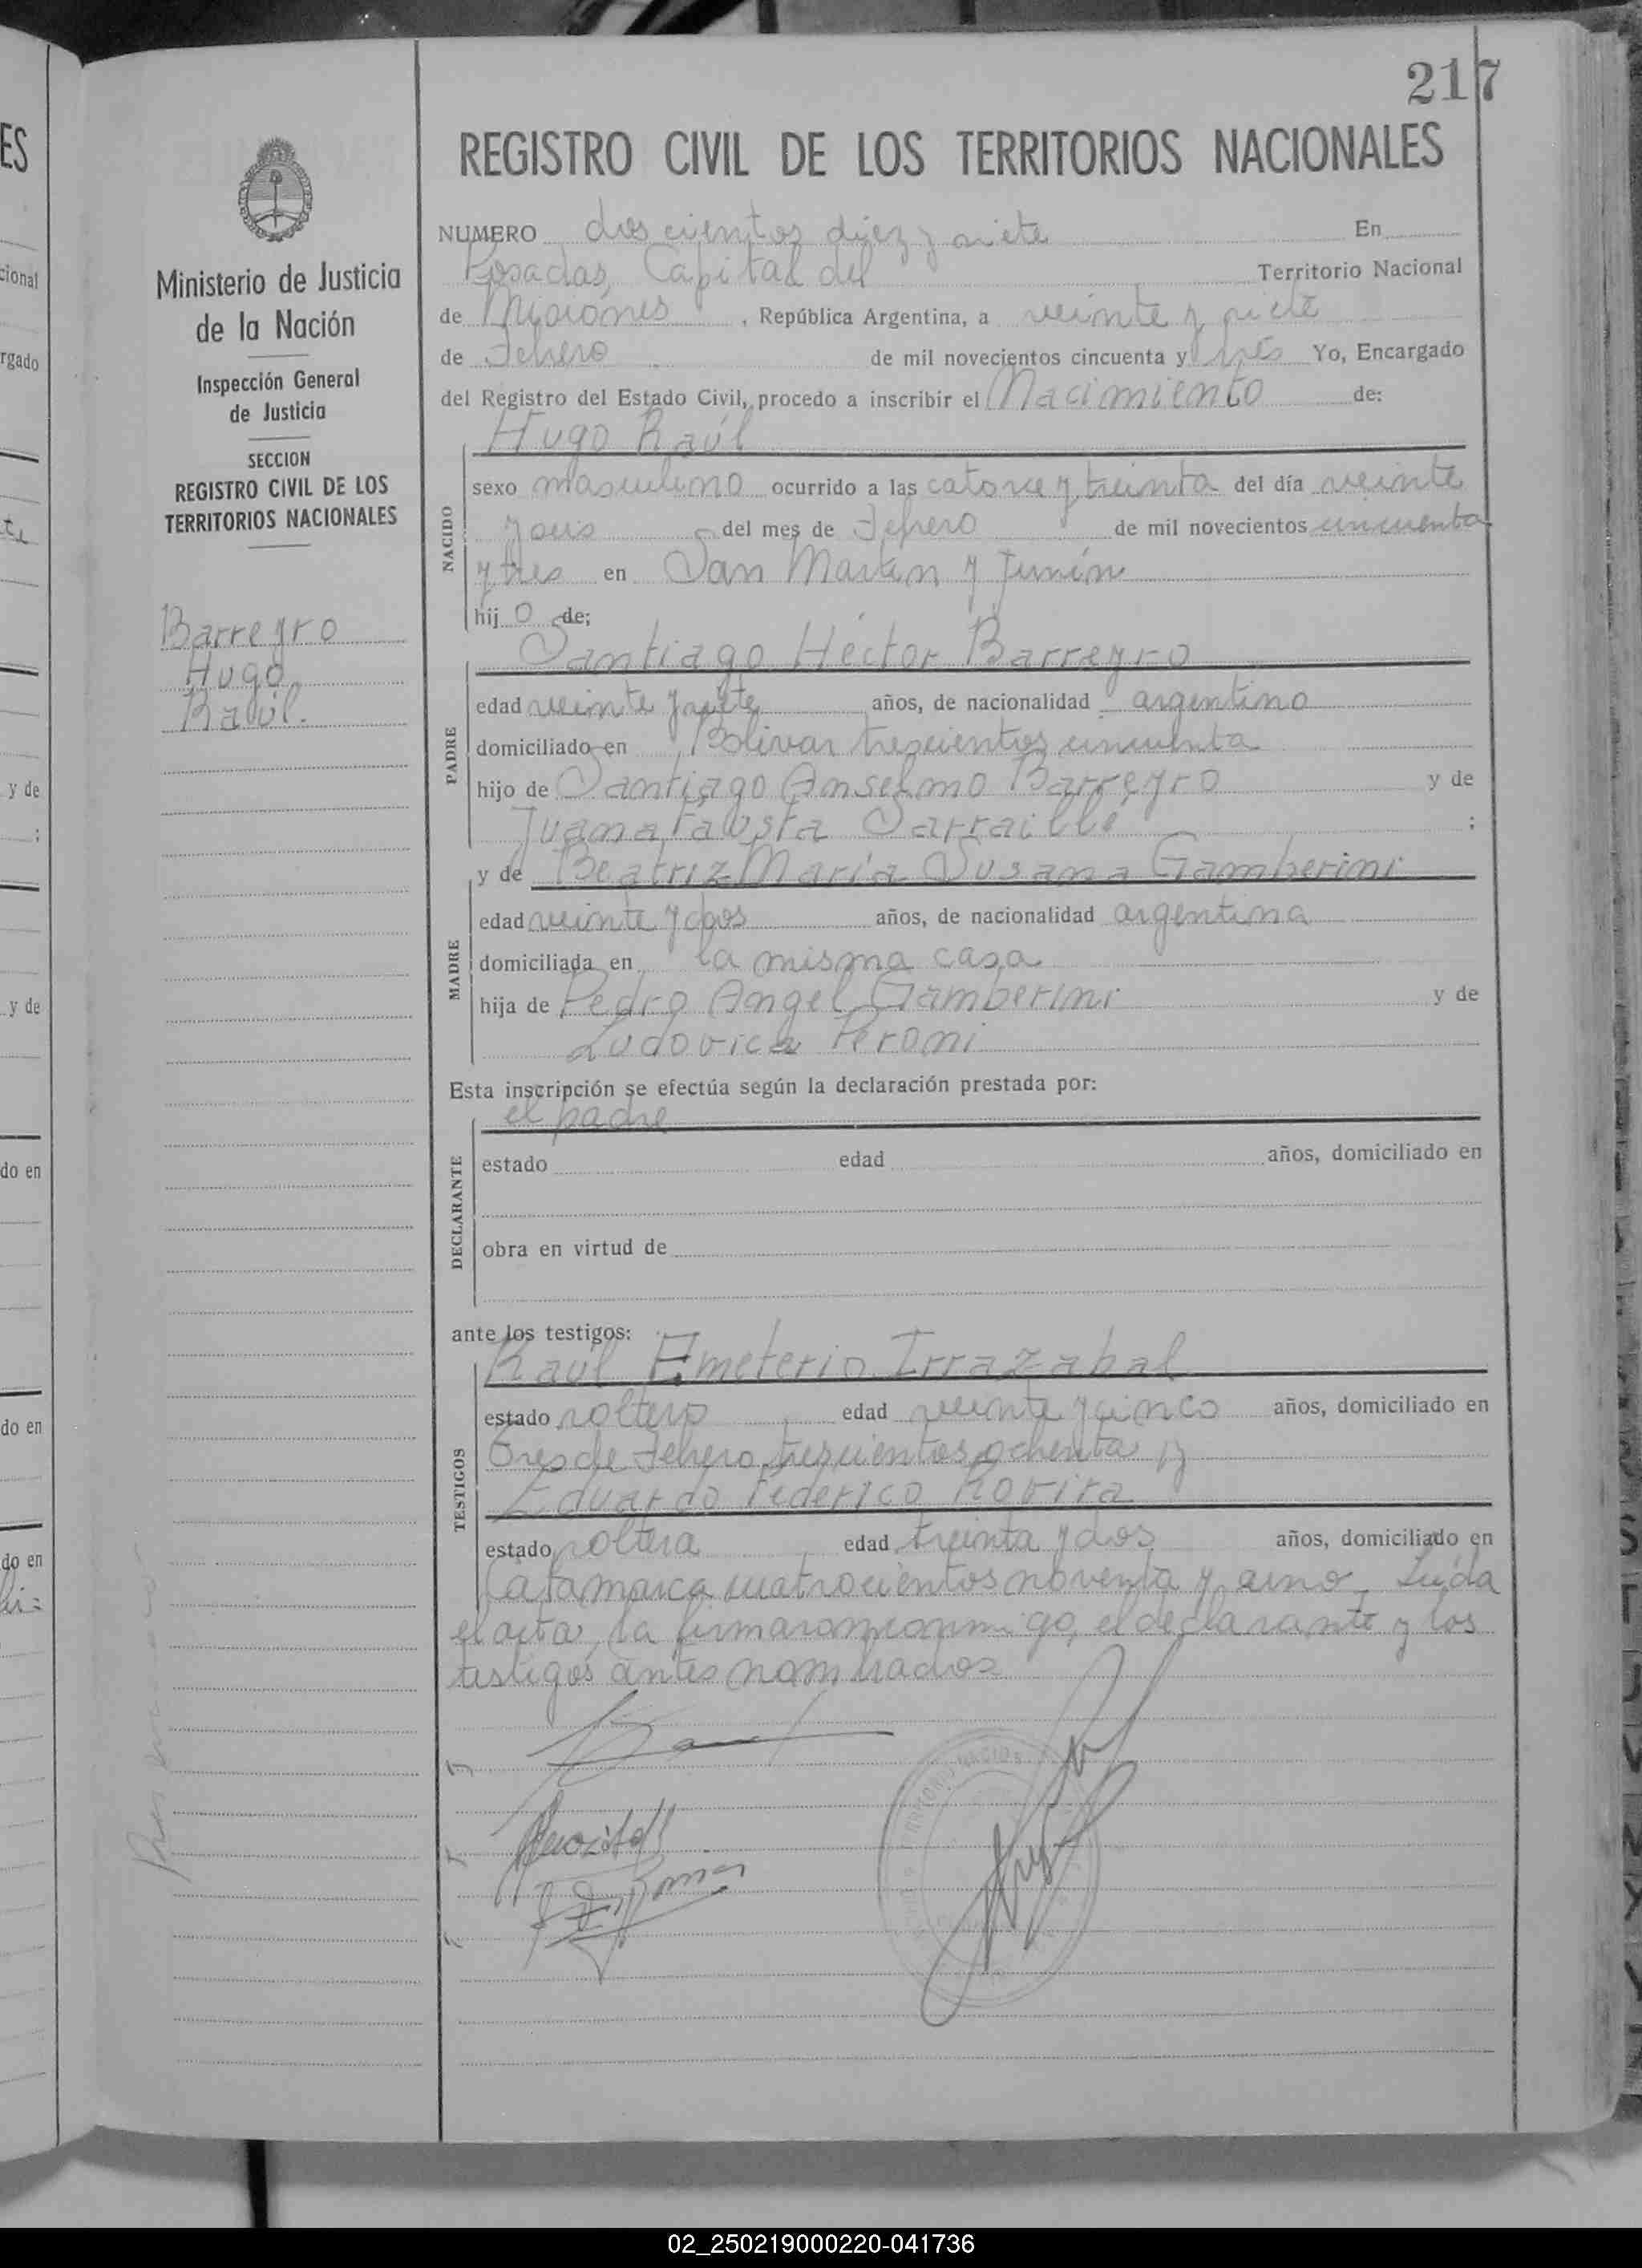 217
REGISTRO CIVIL DE LOS TERRITORIOS NACIONALES
Ministerio de Justicia
de la Nación
Inspección General
de Justicia
SECCION
REGISTRO CIVIL DE LOS
TERRITORIOS NACIONALES
Barreyro
Hugo
Raúl.
NUMERO doscientos diez y siete En
Posadas, Capital del Territorio Nacional
de Misiones, República Argentina, a veinte y siete
de Febrero de mil novecientos cincuenta y tres Yo, Encargado
del Registro del Estado Civil, procedo a inscribir el Nacimiento de:
Hugo Raúl
NACIDO
sexo masculino ocurrido a las catorce y treinta del día veinte
y seis del mes de Febrero de mil novecientos cincuenta
y tres en San Martín y Junín
hijo de;
Santiago Héctor Barreyro
PADRE
edad veinte y siete años, de nacionalidad argentino
domiciliado en Bolivar trescientos cincuenta
hijo de Santiago Anselmo Barreyro y de
Juana Fausta Sarraillé ;
y de Beatriz María Susana Gamberini
MADRE
edad veinte y dos años, de nacionalidad argentina
domiciliada en la misma casa
hija de Pedro Angel Gamberini y de
Ludovica Peroni
Esta inscripción se efectúa según la declaración prestada por:
el padre
DECLARANTE
estado edad años, domiciliado en
obra en virtud de
ante los testigos:
Raúl Emeterio Irrazabal
TESTIGOS
estado soltero edad veinte y cinco años, domiciliado en
Tres de Febrero trescientos ochenta y
Eduardo Federico Rovira
estado soltera edad treinta y dos años, domiciliado en
Catamarca cuatrocientos noventa y uno. Leída
el acta, la firmaron conmigo, el declarante y los
testigos antes nombrados
02_250219000220-041736